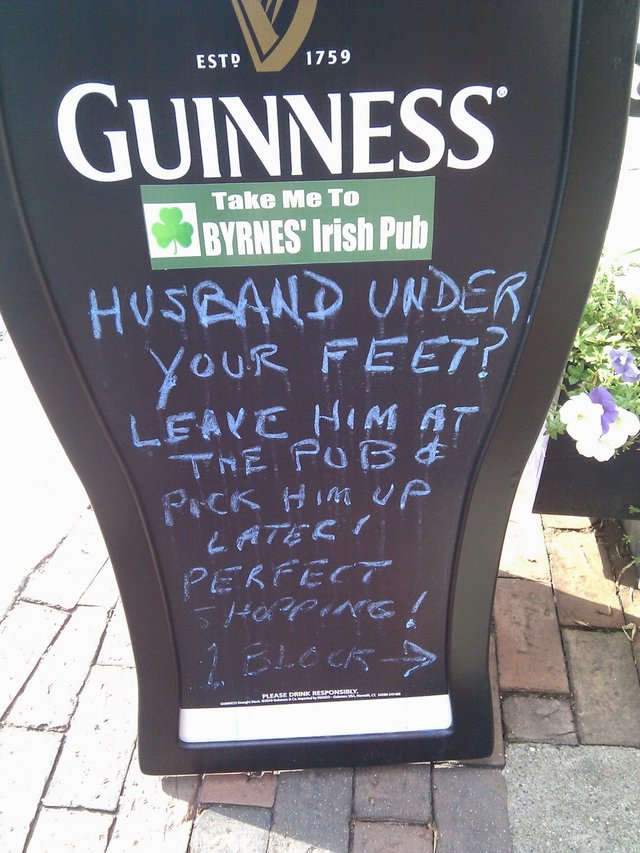 ESTD 1759
GUINNESS®
Take Me To
BYRNES' Irish Pub
HUSBAND UNDER
YOUR FEET?
LEAVE HIM AT
THE PUB &
PICK HIM UP
LATER!
PERFECT
SHOPPING!
1 BLOCK →
PLEASE DRINK RESPONSIBLY.